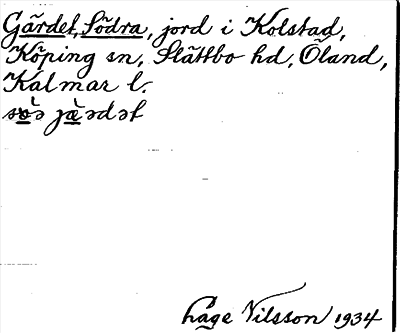 Gärdet, Södra, jord i Kolstad,
Köping sn, Slättbo hd, Öland,
Kalmar l.
jä̀rdət
Lage Nilsson 1934